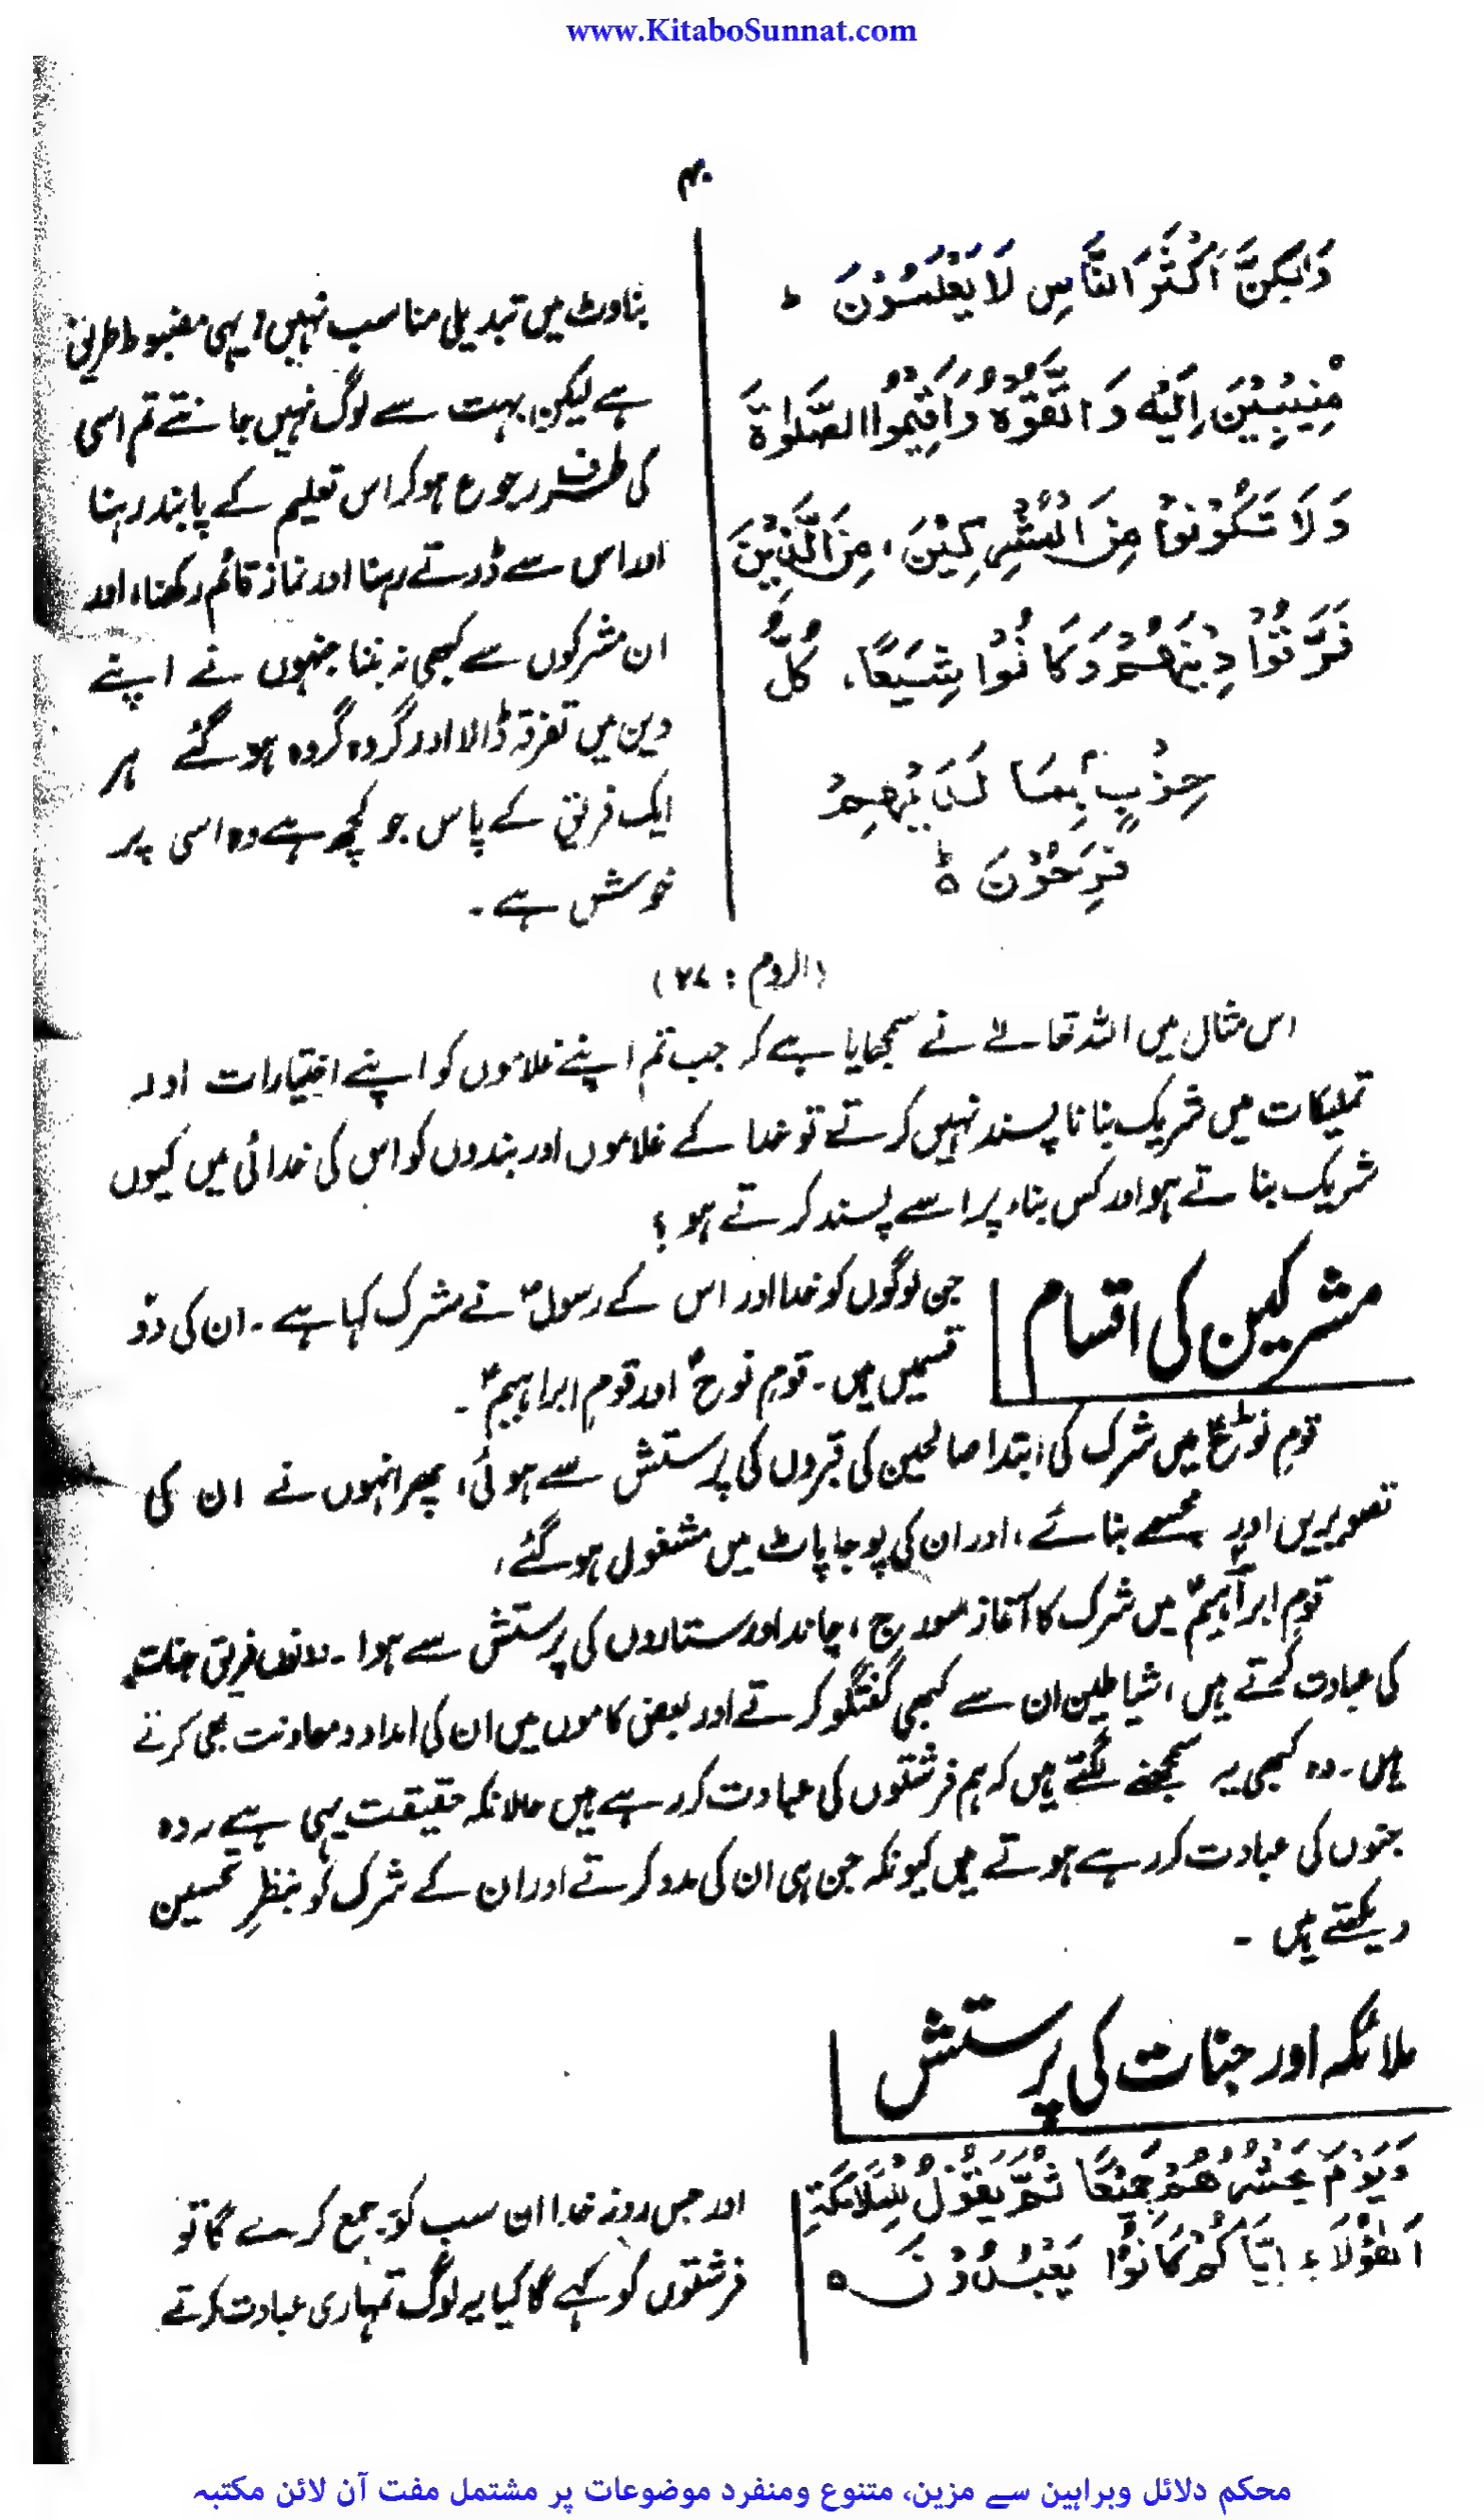 www.KitaboSunnat.com
۴۰
وَلٰكِنَّ اَكْثَرَ النَّاسِ لَا يَعْلَمُوْنَ ط
مُنِيْبِيْنَ اِلَيْهِ وَاتَّقُوْهُ وَاَقِيْمُوا الصَّلٰوةَ
وَلَا تَكُوْنُوْا مِنَ الْمُشْرِكِيْنَ، مِنَ الَّذِيْنَ
فَرَّقُوْا دِيْنَهُمْ وَكَانُوْا شِيَعًا، كُلُّ
حِزْبٍ بِمَا لَدَيْهِمْ
فَرِحُوْنَ ط ہ
بناوٹ میں تبدیلی مناسب نہیں، یہی مضبوط طریق
ہے لیکن بہت سے لوگ نہیں جانتے تم اسی
کی طرف رجوع ہوکر اس تعلیم کے پابند رہنا
اور اس سے ڈرتے رہنا اور نماز قائم رکھنا، اور
ان مشرکوں سے کبھی نہ بننا جنہوں نے اپنے
دین میں تفرقہ ڈالا اور گروہ گروہ ہوگئے ہر
ایک فریق کے پاس جو کچھ ہے وہ اسی پر
خوش ہے۔
(الروم : ۲۷)
اس مثال میں اللہ تعالےٰ نے سمجھایا ہے کہ جب تم اپنے غلاموں کو اپنے اختیارات اور
تملیکات میں شریک بنانا پسند نہیں کرتے تو خدا کے غلاموں اور بندوں کو اس کی خدائی میں کیوں
شریک بناتے ہو اور کس بناء پر اسے پسند کرتے ہو ؟
مشرکین کی اقسام
جن لوگوں کو خدا اور اس کے رسولؐ نے مشرک کہا ہے۔ ان کی دو
قسمیں ہیں۔ قومِ نوحؑ اور قومِ ابراہیمؑ۔
قومِ نوحؑ میں شرک کی ابتدا صالحین کی قبروں کی پرستش سے ہوئی، پھر انہوں نے ان کی
تصویریں اور مجسمے بنائے، اور ان کی پوجا پاٹ میں مشغول ہوگئے،
قومِ ابراہیمؑ میں شرک کا آغاز سورج، چاند اور ستاروں کی پرستش سے ہوا۔ دونوں فریق جنات
کی عبادت کرتے ہیں، شیاطین ان سے کبھی گفتگو کرتے اور بعض کاموں میں ان کی امداد و معاونت بھی کرتے
ہیں۔ وہ کبھی یہ سمجھنے لگتے ہیں کہ ہم فرشتوں کی عبادت کررہے ہیں حالانکہ حقیقت یہی ہے ، وہ
جنوں کی عبادت کررہے ہوتے ہیں کیونکہ جن ہی ان کی مدد کرتے اور ان کے شرک کو بنظرِ تحسین
دیکھتے ہیں ۔
ملائکہ اور جنات کی پرستش
وَيَوْمَ يَحْشُرُهُمْ جَمِيْعًا ثُمَّ يَقُوْلُ لِلْمَلَائِكَةِ
اَهٰؤُلَاءِ اِيَّاكُمْ كَانُوْا يَعْبُدُوْنَ ہ
اور جس روز خدا ان سب کو جمع کرے گا تو
فرشتوں کو کہے گا کیا یہ لوگ تمہاری عبادت کرتے
محکم دلائل وبراہین سے مزین، متنوع ومنفرد موضوعات پر مشتمل مفت آن لائن مکتبہ